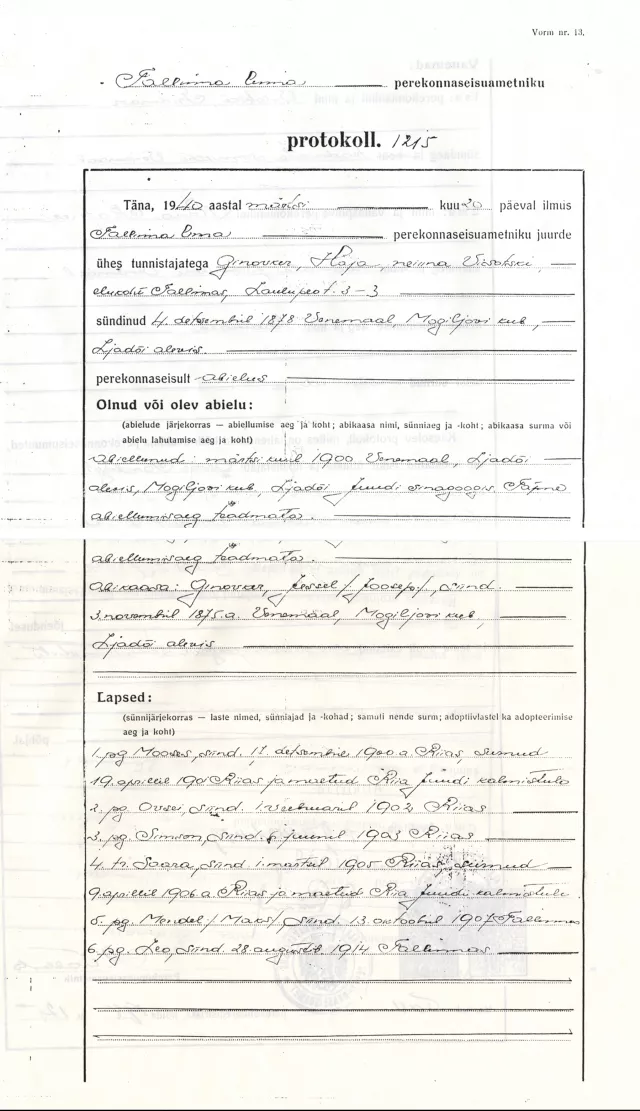 Vorm nr. 13.
Tallinna linna perekonnaseisuametniku
protokoll. 1215
Täna, 1940 aastal märtsi kuu 20 päeval ilmus
Tallinna linna perekonnaseisuametniku juurde
ühes tunnistajatega Ginovker, Haja, neiuna
elukoht Tallinnas, Laulupeo t. 3-3
sündinud 4. detsembril 1878 Venemaal, Mogiljovi kub.,
Ljadõi alevis.
perekonnaseisult abielus
Olnud või olev abielu:
(abielude järjekorras — abiellumise aeg ja koht; abikaasa nimi, sünniaeg ja -koht; abikaasa surma või
abielu lahutamise aeg ja koht)
Abiellunud: märtsi kuul 1900 Venemaal, Ljadõi
alevis, Mogiljovi kub., Ljadõi Juudi sinagoogis. Täpne
abiellumisaeg teadmata.
abiellumisaeg teadmata.
Abikaasa: Ginovker, Jossel /Joosep/, sünd.
3. novembril 1875.a. Venemaal, Mogiljovi kub.,
Ljadõi alevis
Lapsed:
(sünnijärjekorras — laste nimed, sünniajad ja -kohad; samuti nende surm; adoptiivlastel ka adopteerimise
aeg ja koht)
1. pg. Mooses, sünd. 17. detsembril 1900 a. Riias, surnud
19. aprillil 1901 Riias ja maetud Riia Juudi kalmistule
2. pg. Ovsei, sünd. 1. veebruaril 1902 Riias
3. pg. Simson, sünd. 6. juunil 1903 Riias
4. tr. Saara, sünd. 1. märtsil 1905 Riias, surnud
9. aprillil 1906 a. Riias ja maetud Riia Juudi kalmistule.
5. pg. Mendel /Maks/, sünd. 13. oktoobril 1907 Tallinnas
6. pg. Leo, sünd. 28. augustil 1914 Tallinnas